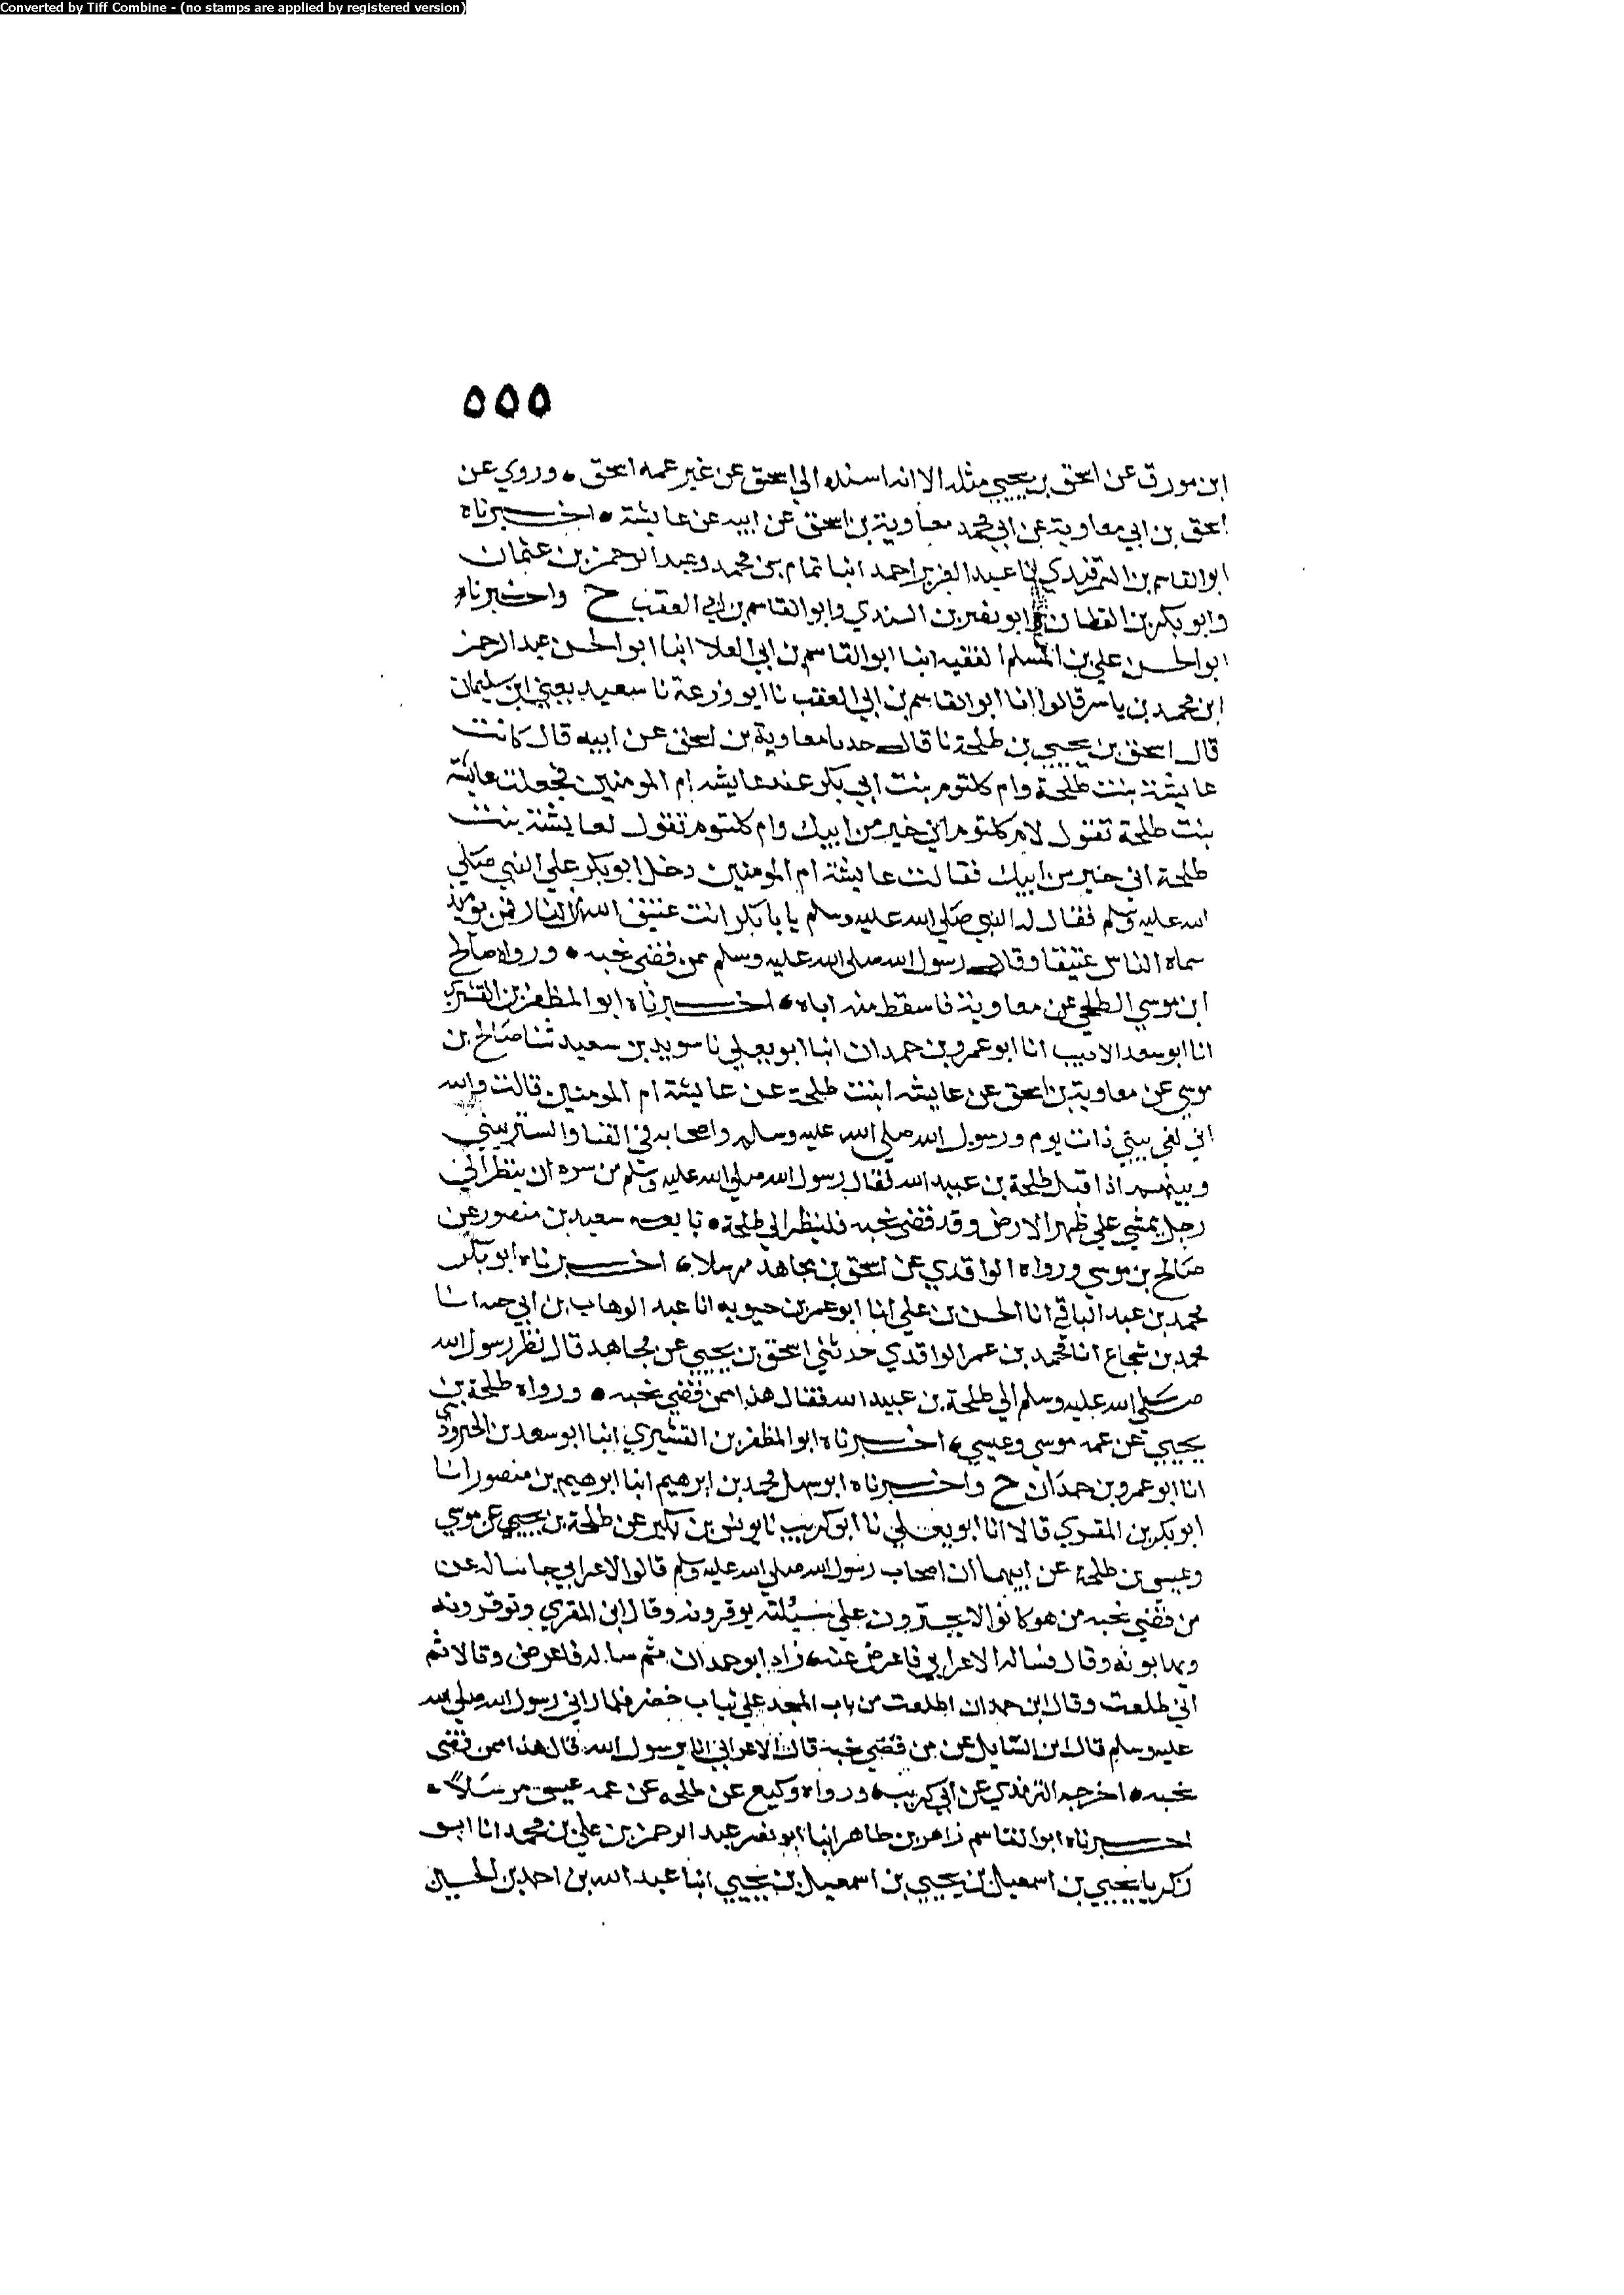 Converted by Tiff Combine - (no stamps are applied by registered version)
٥٥٥
ابن مورق عن اسحق بن يحيي مثله الا انه اسنده الي اسحق عن غير عمه اسحق • وروي عن
اسحق بن ابي معاوية عن ابي محمد معاوية بن اسحق عن ابيه عن عايشة • اخبرناه
ابو القاسم بن السمرقندي انا عبد العزيز احمد انبا تمام بن محمد وعبد الرحمن بن عثمان
وابو بكر بن القطان وابو نصر بن السندي وابو القاسم بن ابي العقب ح واخبرناه
ابو الحسن علي بن المسلم الفقيه انبا ابو القاسم بن ابي العلا انبا ابو الحسن عبد الرحمن
ابن محمد بن ياسر قالوا انا ابو القاسم بن ابي العقب نا ابو زرعة نا سعيد يعني ابن سليمان
قال اسحق بن يحيي بن طلحة نا قال حدثنا معاوية بن اسحق عن ابيه قال كانت
عايشة بنت طلحة وام كلتوم بنت ابي بكر عند عايشه ام المومنين فجعلت عايشة
بنت طلحة تقول لام كلتوم اني خير من ابيك وام كلتوم تقول لعايشة بنت
طلحة ابي خير من ابيك فقالت عايشة ام المومنين دخل ابو بكر علي النبي صلي
الله عليه وسلم فقال له النبي صلي الله عليه وسلم يابا بكر انت عتيق الله من النار فمن يومئذ
سماه الناس عتيقا وقال رسول الله صلي الله عليه وسلم ممن قضي نحبه • ورواه صالح
ابن موسي الطلحي عن معاوية فاسقط منه اباه • اخبرناه ابو المظفر بن القشيري
انا ابو سعد الاديب انا ابو عمرو بن حمدان انبا ابو يعلي نا سويد بن سعيد ثنا صالح بن
موسي عن معاوية بن اسحق عن عايشه ابنت طلحة عن عايشة ام المومنين قالت والله
اني لفي بيتي ذات يوم ورسول الله صلي الله عليه وسلم واصحابه في الفنا والستر بيني
وبينهم اذ اقبل طلحة بن عبيد الله فقال رسول الله صلي الله عليه وسلم من سره ان ينظر الي
رجل يمشي علي ظهر الارض وقد قضي نحبه فلينظر الي طلحة • تابعه سعيد بن منصور عن
صالح بن موسي ورواه الواقدي عن اسحق بن مجاهد مرسلا • اخبرناه ابو بكر
محمد بن عبد الباقي انا الحسن بن علي انا ابو عمر بن حيويه انا عبد الوهاب بن ابي حيه انا
محمد بن شجاع انا محمد بن عمر الواقدي حدثني اسحق بن يحيي عن مجاهد قال نظر رسول الله
صلي الله عليه وسلم الي طلحة بن عبيد الله فقال هذا ممن قضي نحبه • ورواه طلحة بن
يحيي عن عمه موسي وعيسي • اخبرناه ابو المظفر بن القشيري انبا ابو سعد بن الجنزرودي
انا ابو عمرو بن حمدان ح واخبرناه ابو سهل محمد بن ابرهيم انبا ابرهيم بن منصور انا
ابو بكر بن المقري قالا انا ابو يعلي نا ابو كريب نا يونس بن بكير عن طلحة بن يحيي عن موسي
وعيسي بن طلحة عن ابيهما ان اصحاب رسول الله صلي الله عليه وسلم قالوا لاعرابي جا ساله عن
من قضي نحبه من هو كانوا لا يجترون علي مسئلته يوقرونه وقال ابن المقري وتوقرونه
ويهابونه وقال فساله الاعرابي فاعرض عنه زاد ابو حمدان ثم ساله فاعرض وقالا ثم
اني طلعت وقال ابن حمدان اطلعت من باب المسجد علي ثياب خضر فلما راني رسول الله صلي الله
عليه وسلم قال اين السايل عن من قضي نحبه قال الاعرابي انا يرسول الله قال هذا ممن قضي
نحبه • اخرجه الترمذي عن ابي كريب • ورواه وكيع عن طلحه عن عمه عيسي مرسلا •
اخبرناه ابو القاسم زاهر بن طاهر انبا ابو نصر عبد الرحمن بن علي بن محمد انا ابو
زكريا يحيي بن اسمعيل بن يحيي بن اسمعيل بن يحيي انبا عبد الله بن احمد بن الحسين